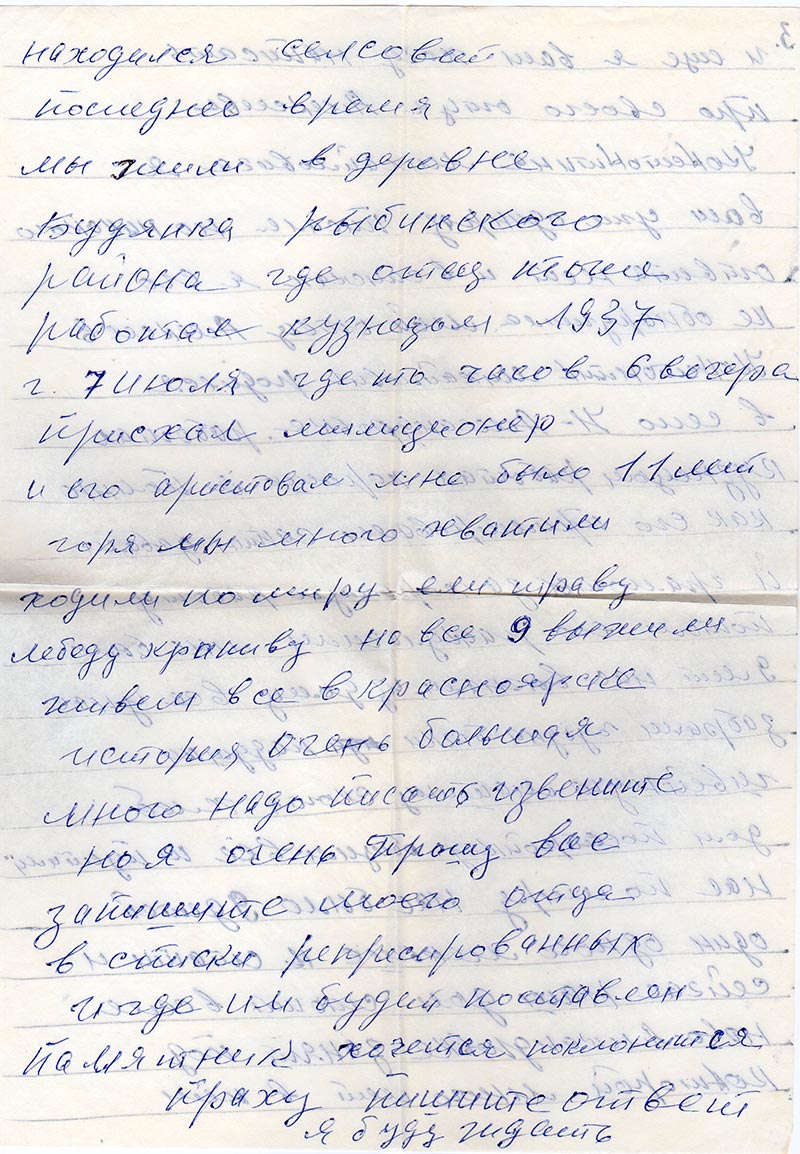 находился сельсовет
последнее время
мы жили в деревне
Будянка рыбинского
района где отец тоже
работал кузнецом 1937
г. 7 июля где то часов 6 вечера
приехал милиционер
и его аристовал мне было 11 лет
горя мы много хватили
ходили по миру ели траву
лебеду крапиву но все 9 выжили
живем все в красноярске
история очень большая
много надо писать извените
но я очень прошу вас
запишите моего отца
в списки реприсированных
и где им будет поставлен
памятник хочется поклонится
праху пишите ответ
я буду ждать